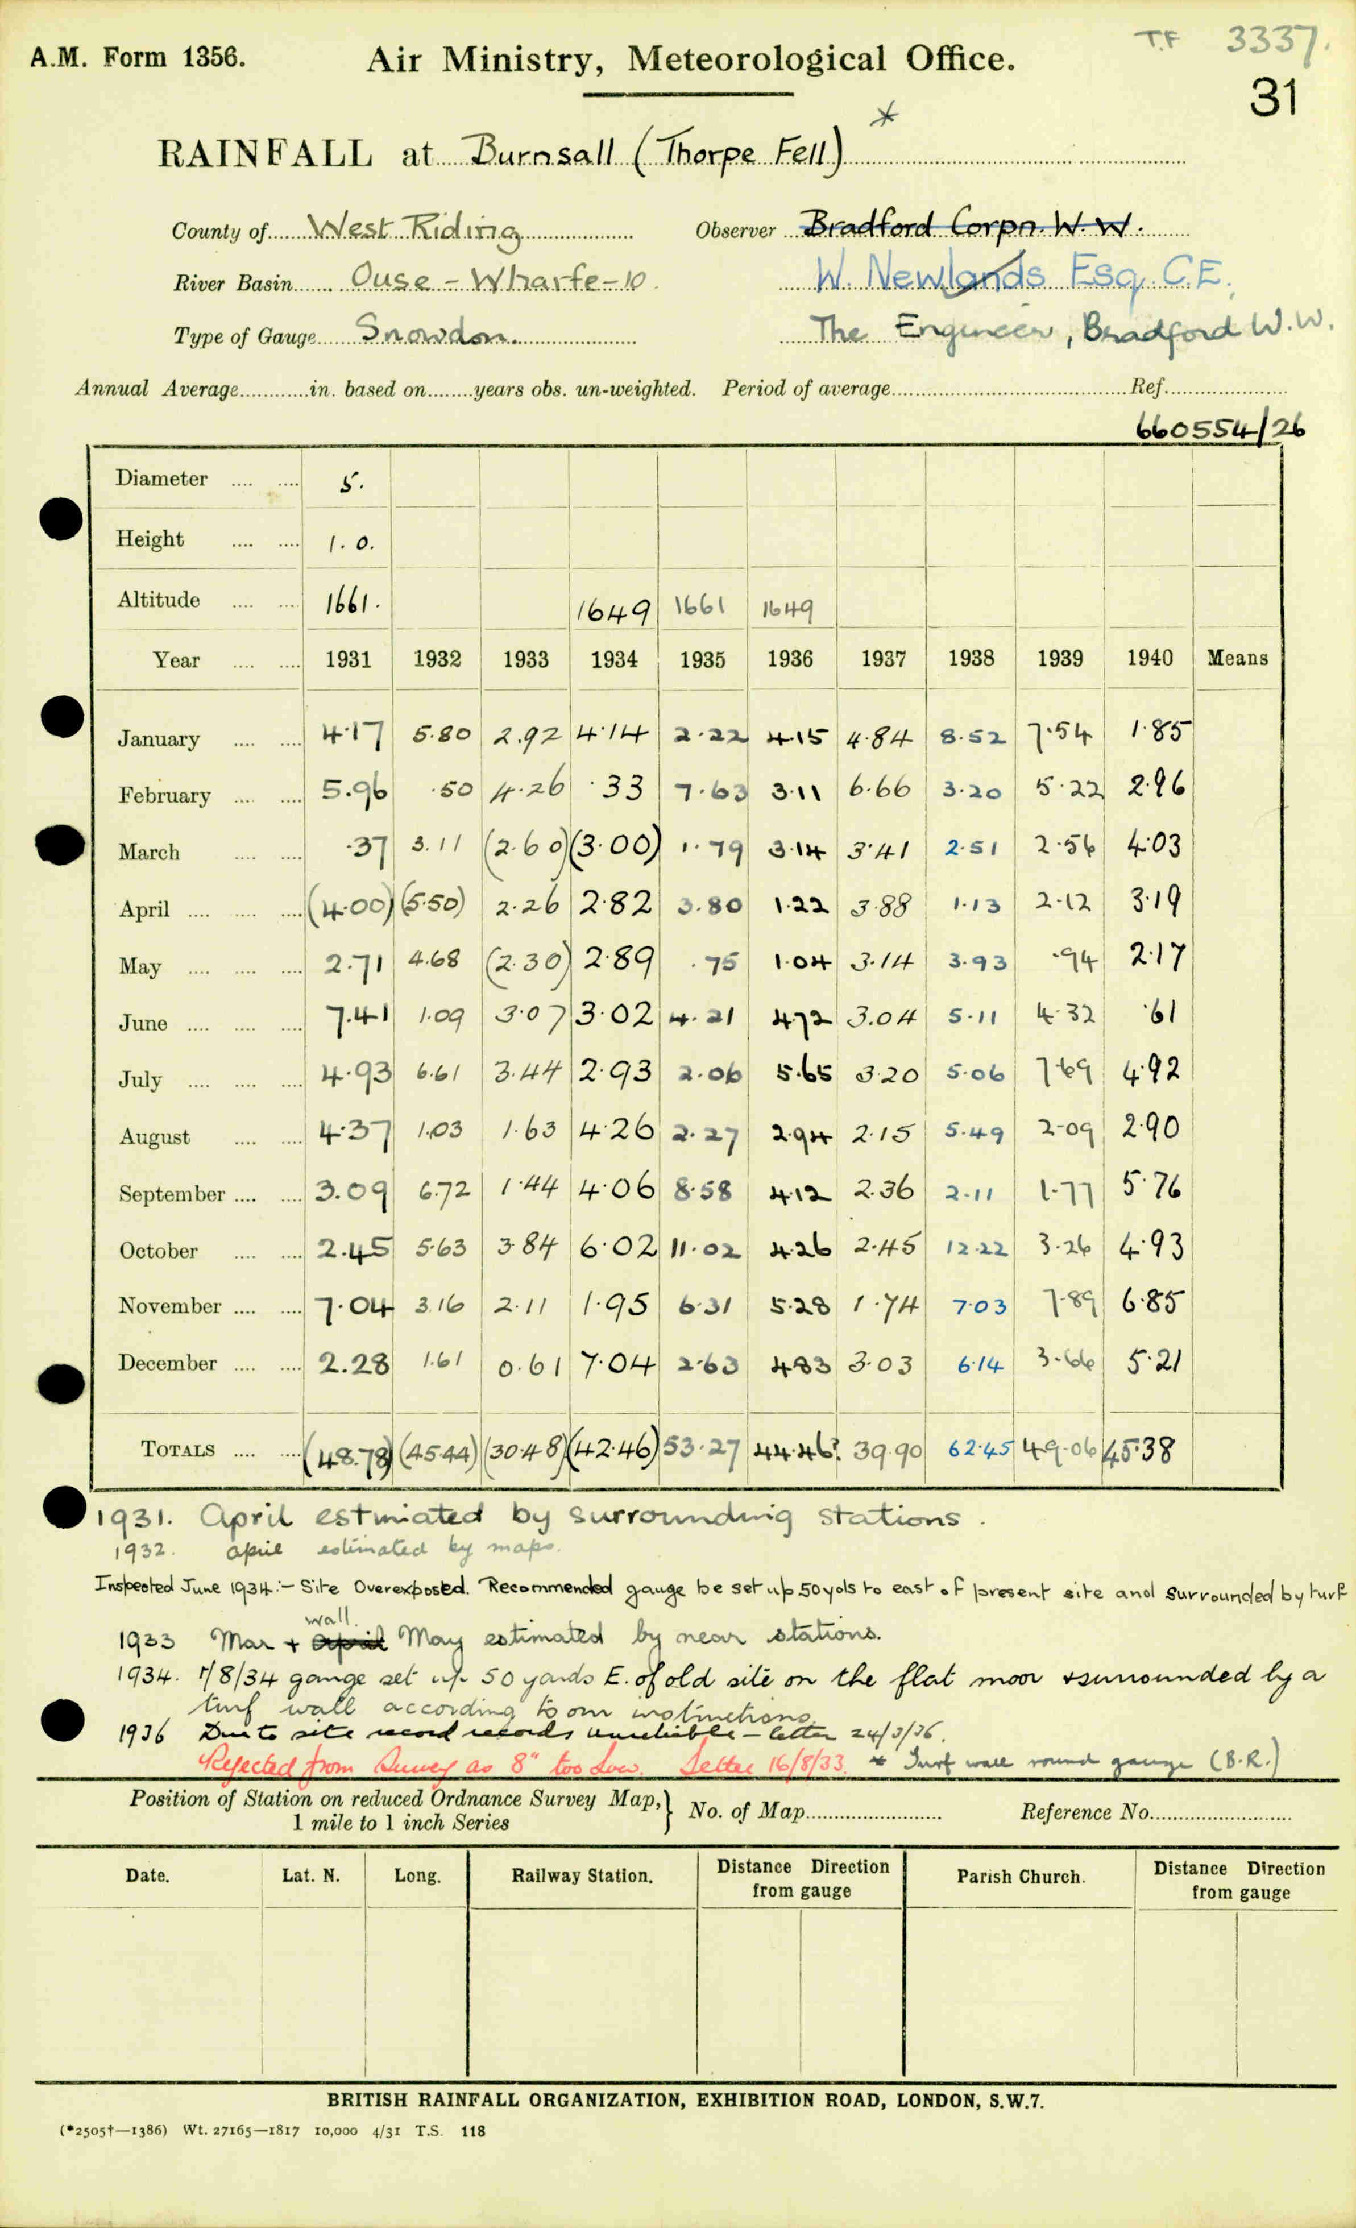 T.F 3337.
A.M. Form 1356. Air Ministry, Meteorological Office.
31
RAINFALL at Burnsall (Thorpe Fell) *
County of West Riding Observer Bradford Corpn. W.W.
River Basin Ouse - Wharfe - 10. W. Newlands Esq. C.E.
Type of Gauge Snowdon. The Engineer, Bradford W.W.
Annual Average............in. based on........years obs. un-weighted. Period of average........................Ref...............
660554/26
Diameter .... .... 5.
Height .... .... 1.0.
Altitude .... .... 1661. 1649 1661 1649
Year .... .... 1931 1932 1933 1934 1935 1936 1937 1938 1939 1940 Means
January .... .... 4.17 5.80 2.92 4.14 2.22 4.15 4.84 8.52 7.54 1.85
February .... .... 5.96 .50 4.26 .33 7.63 3.11 6.66 3.20 5.22 2.96
March .... .... .37 3.11 (2.60) (3.00) 1.79 3.14 3.41 2.51 2.56 4.03
April .... .... .... (4.00) (5.50) 2.26 2.82 3.80 1.22 3.88 1.13 2.12 3.19
May .... .... .... 2.71 4.68 (2.30) 2.89 .75 1.04 3.14 3.93 .94 2.17
June .... .... .... 7.41 1.09 3.07 3.02 4.21 4.72 3.04 5.11 4.32 .61
July .... .... .... 4.93 6.61 3.44 2.93 2.06 5.65 3.20 5.06 7.69 4.92
August .... .... 4.37 1.03 1.63 4.26 2.27 2.94 2.15 5.49 2.09 2.90
September .... .... 3.09 6.72 1.44 4.06 8.58 4.12 2.36 2.11 1.77 5.76
October .... .... 2.45 5.63 3.84 6.02 11.02 4.26 2.45 12.22 3.26 4.93
November .... .... 7.04 3.16 2.11 1.95 6.31 5.28 1.74 7.03 7.89 6.85
December .... .... 2.28 1.61 0.61 7.04 2.63 4.83 3.03 6.14 3.66 5.21
TOTALS .... .... (48.78) (45.44) (30.48) (42.46) 53.27 44.46? 39.90 62.45 49.06 45.38
1931. April estmiated by surrounding stations.
1932. april estimated by maps.
Inspected June 1934:- Site Overexposed. Recommended gauge be set up 50yds to east of present site and surrounded by turf
wall.
1933 Mar + April May estimated by near stations.
1934. 7/8/34 gauge set up 50 yards E. of old site on the flat moor & surrounded by a
turf wall according to our instructions
1936 Due to site record records unreliable - letter 24/3/36.
Rejected from Survey as 8" too Low. Letter 16/8/33. * Turf wall round gauge (B.R.)
Position of Station on reduced Ordnance Survey Map, } No. of Map........................ Reference No........................
1 mile to 1 inch Series
Date. Lat. N. Long. Railway Station. Distance Direction from gauge Parish Church. Distance Direction from gauge
BRITISH RAINFALL ORGANIZATION, EXHIBITION ROAD, LONDON, S.W.7.
(*2505†—1386) Wt. 27165—1817 10,000 4/31 T.S. 118